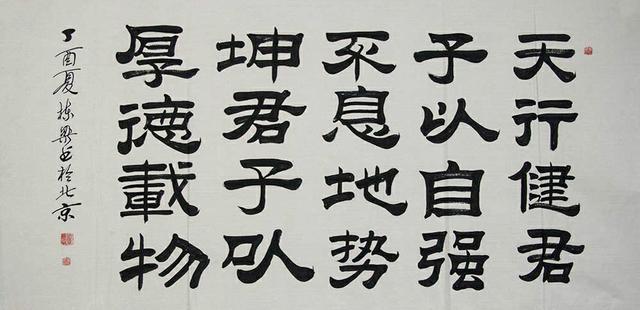 天行健君
子以自强
不息地势
坤君子以
厚德載物
丁酉夏栋梁书於北京